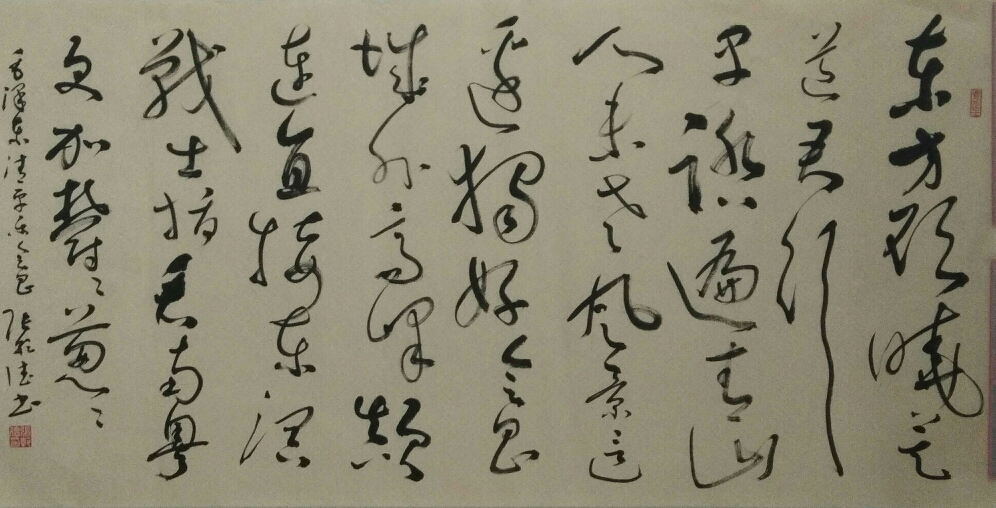 东方欲晓莫
道君行
早踏遍青山
人未老风景这
边独好会昌
城外高峰颠
连直接东溟
战士指看南粤
更加郁々葱々
毛泽东清平乐会昌 张德书